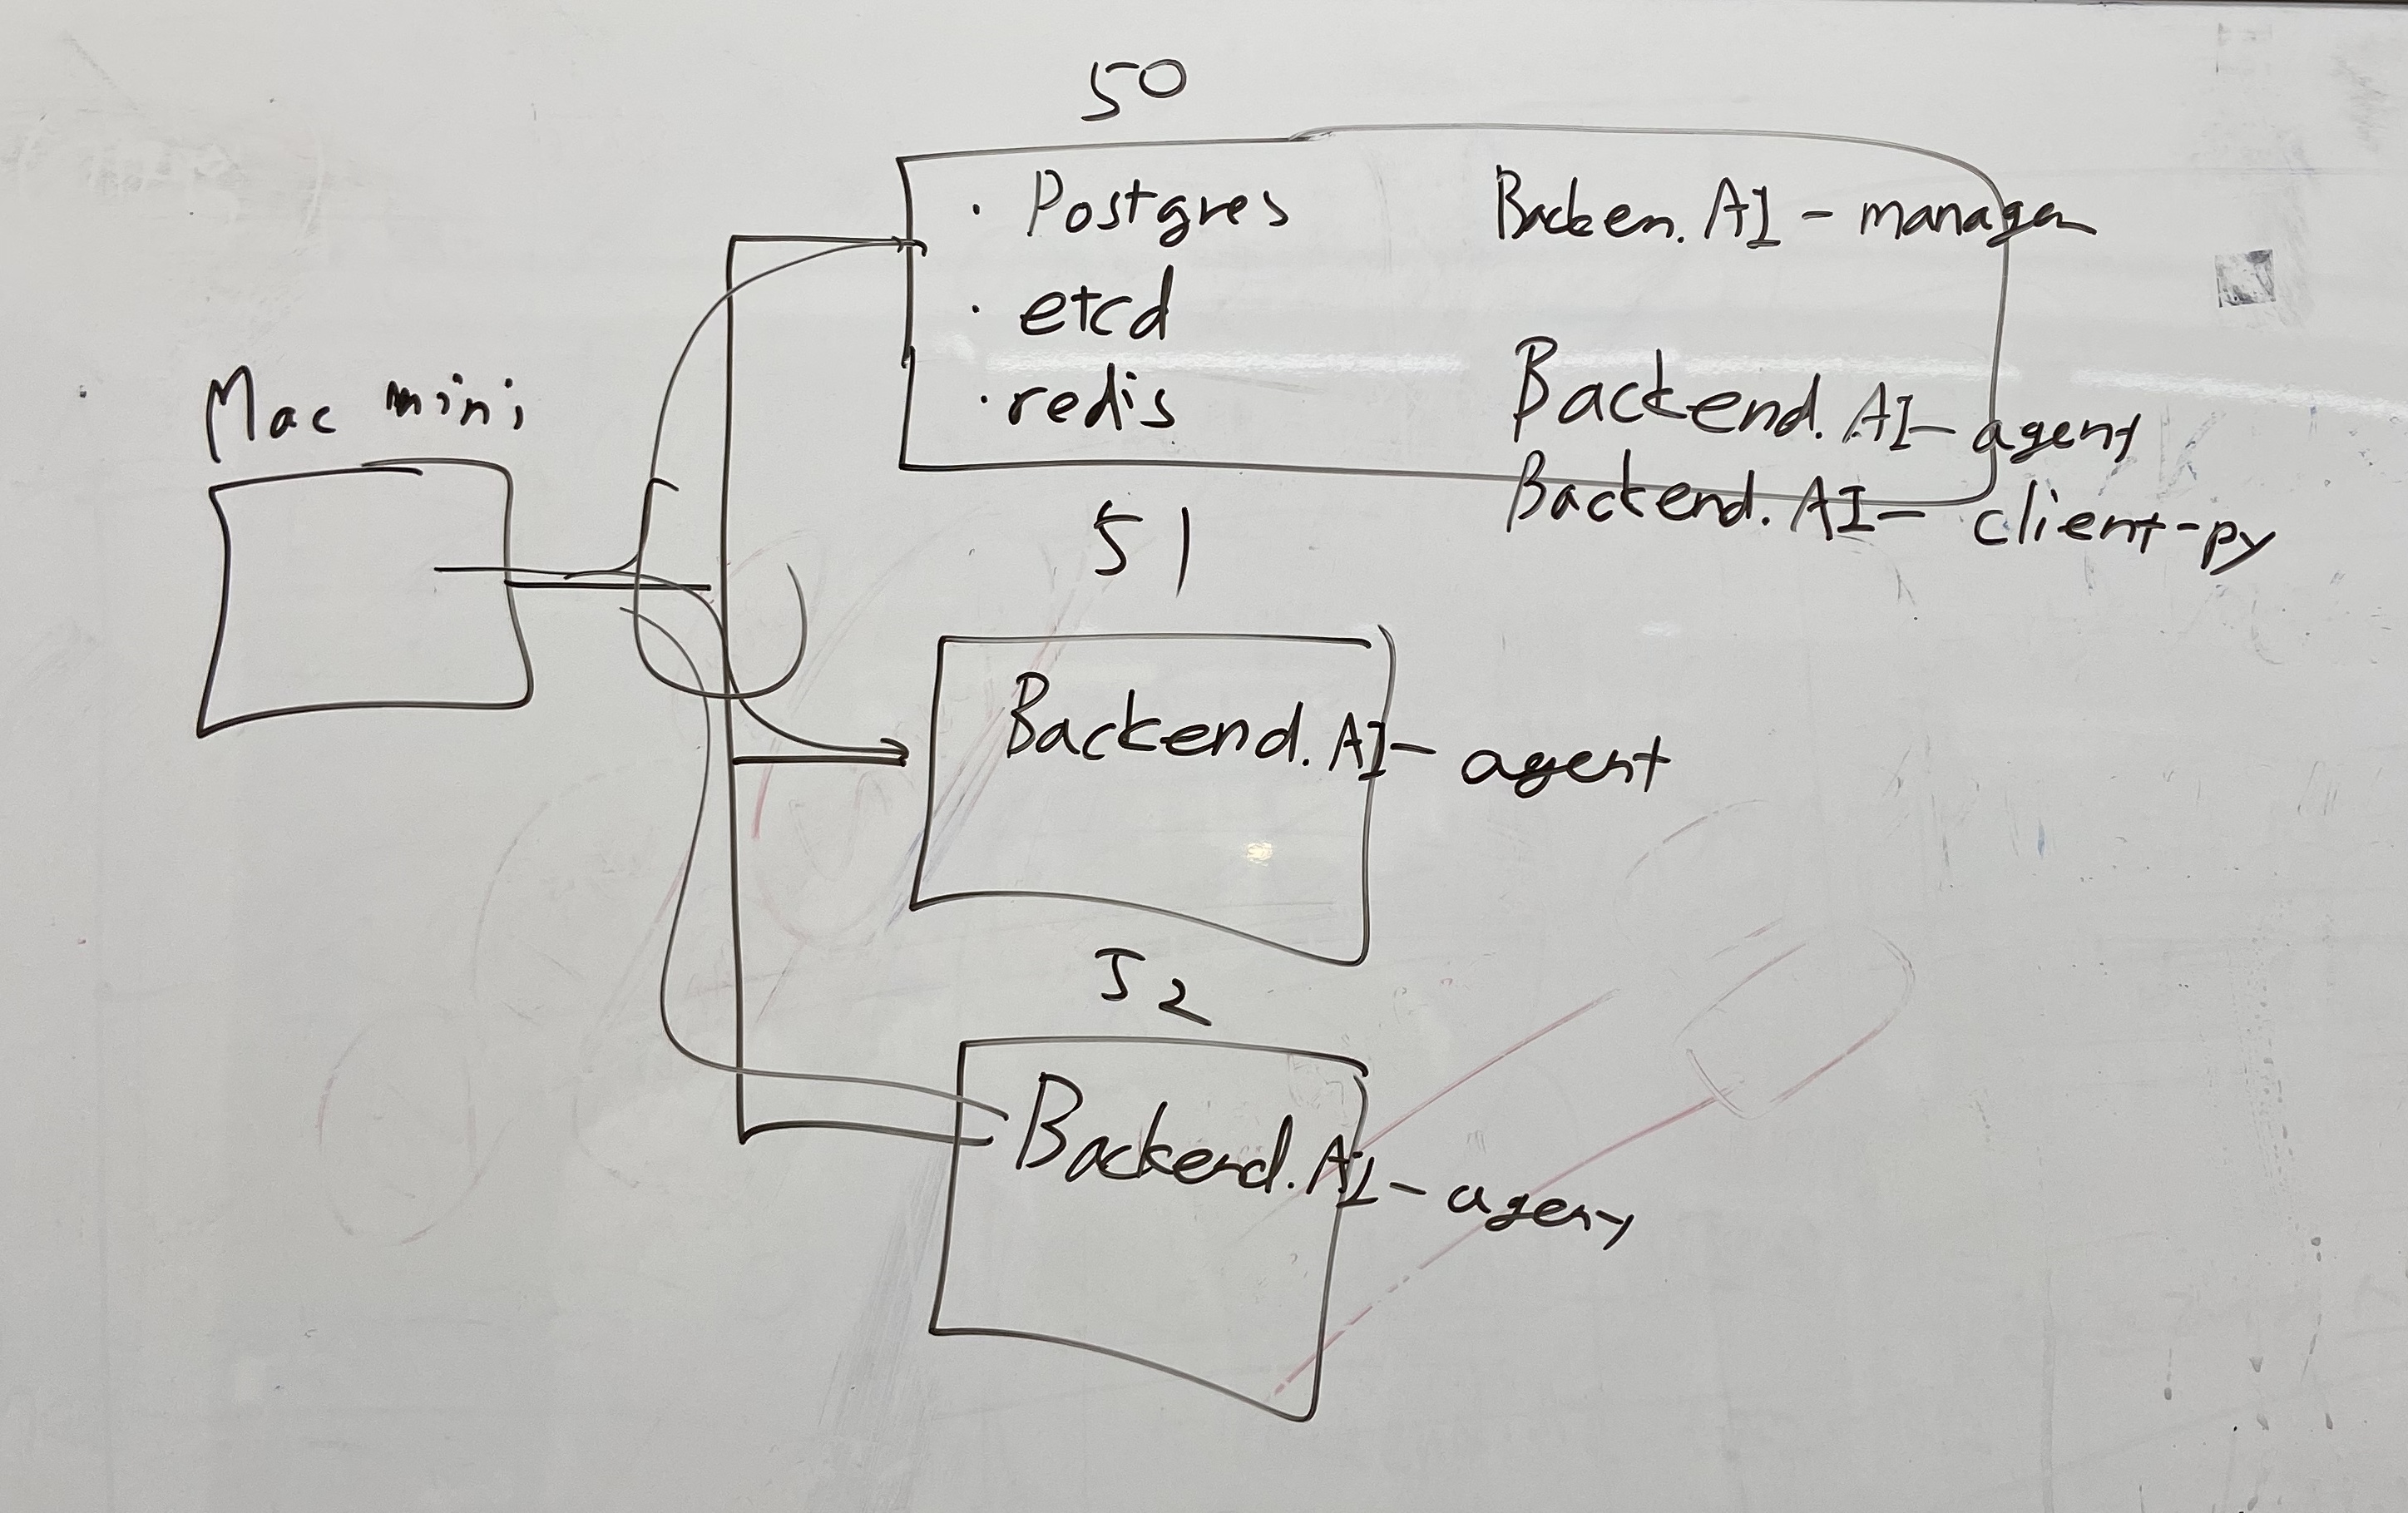 Mac mini
50
· Postgres
· etcd
· redis
Backen.AI - manager
Backend.AI - agent
Backend.AI - client-py
51
Backend.AI - agent
52
Backend.AI - agent